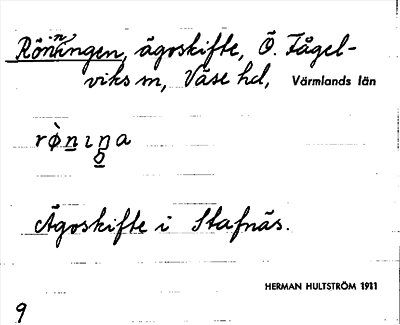 Rönningen, ägoskifte, Ö. Fågel-
viks sn, Väse hd, Värmlands län
Ägoskifte i Stafnäs.
HERMAN HULTSTRÖM 1911
9